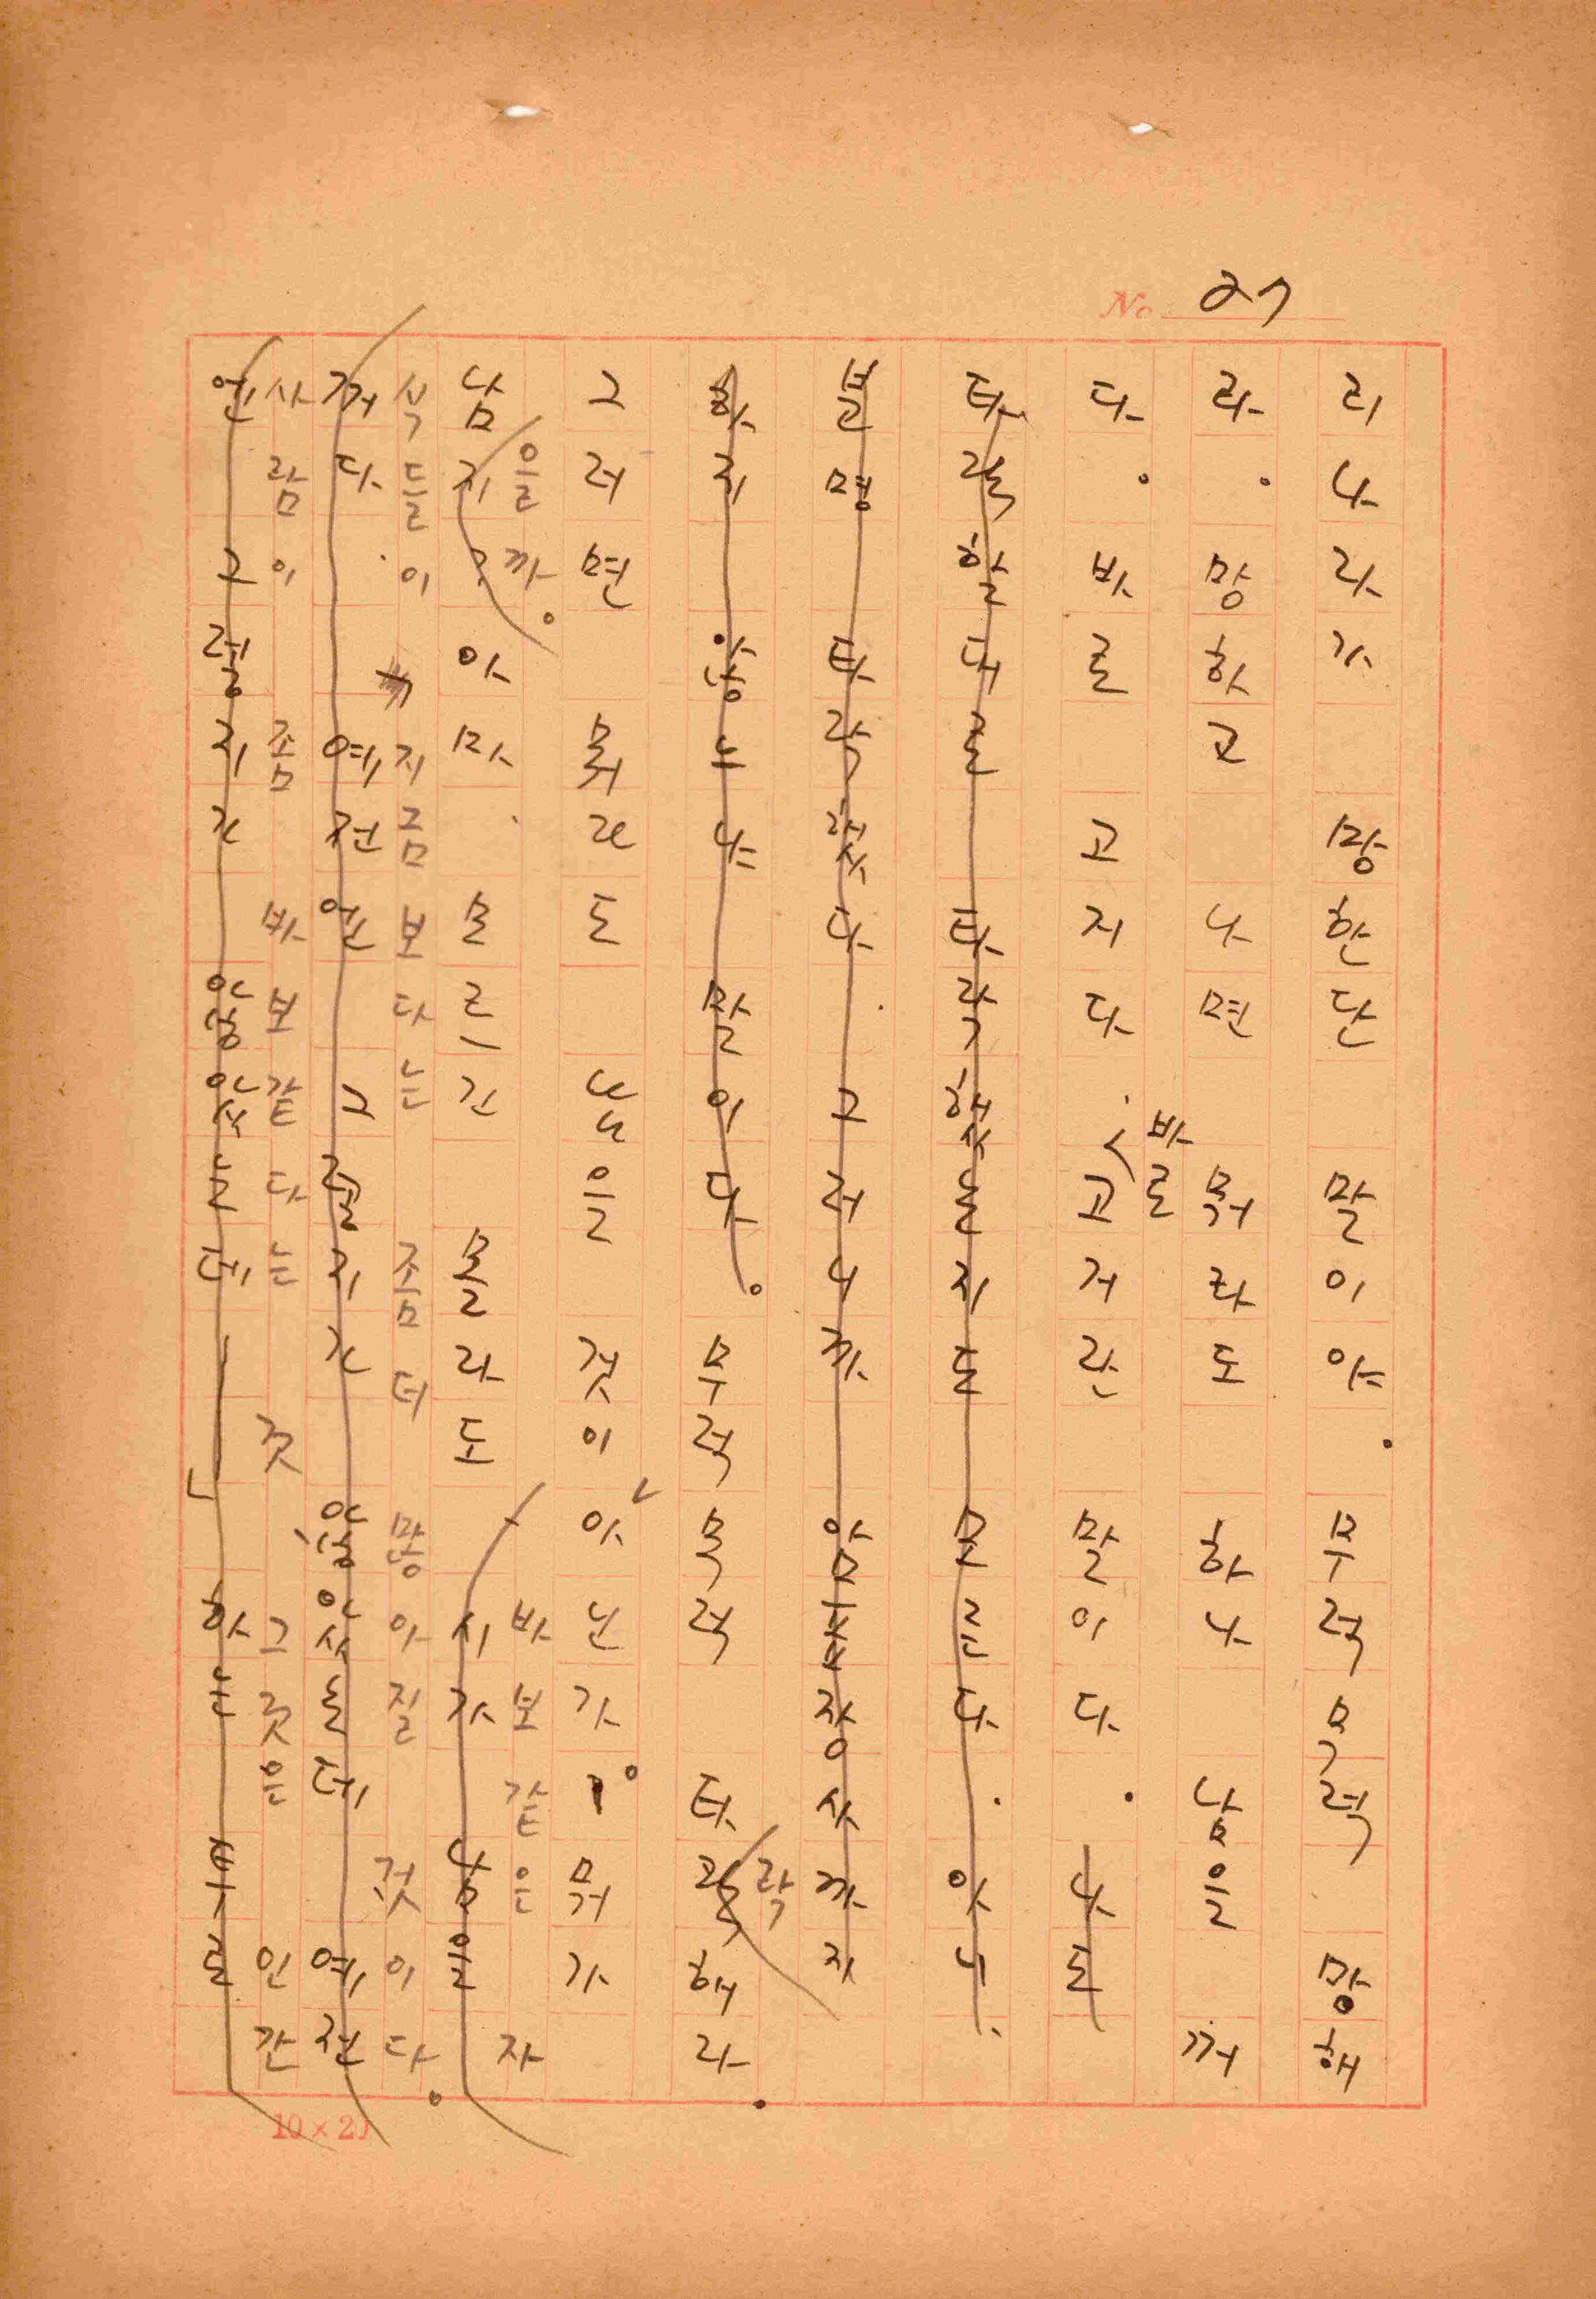 No. 27
리나라가 망한단 말이야. 무럭무럭 망해
라. 망하고 나면 뭐라도 하나 남을 꺼
다. 바로 고 지다. 고거란 말이다. 나도
바로
타락할 대로 타락했는지도 모른다. 아니,
분명 타락했다. 그러니까 장사까지
하지 않느냐 말이다. 무럭무럭 타락해라.
그러면 뭐래도 남을 것이 아닌가. 뭐가
을까. 바보 같은 자
남지? 아마, 모르긴 몰라도, 시가 남을
식들이 지금보다는 좀 더 많아질 것이다.
꺼다. 예전엔 그렇지가 않았는데, 예전
사람이 좀 바보 같다는 것 그것은 인간
엔 그렇지가 않았는데— 하는 투로
10×20